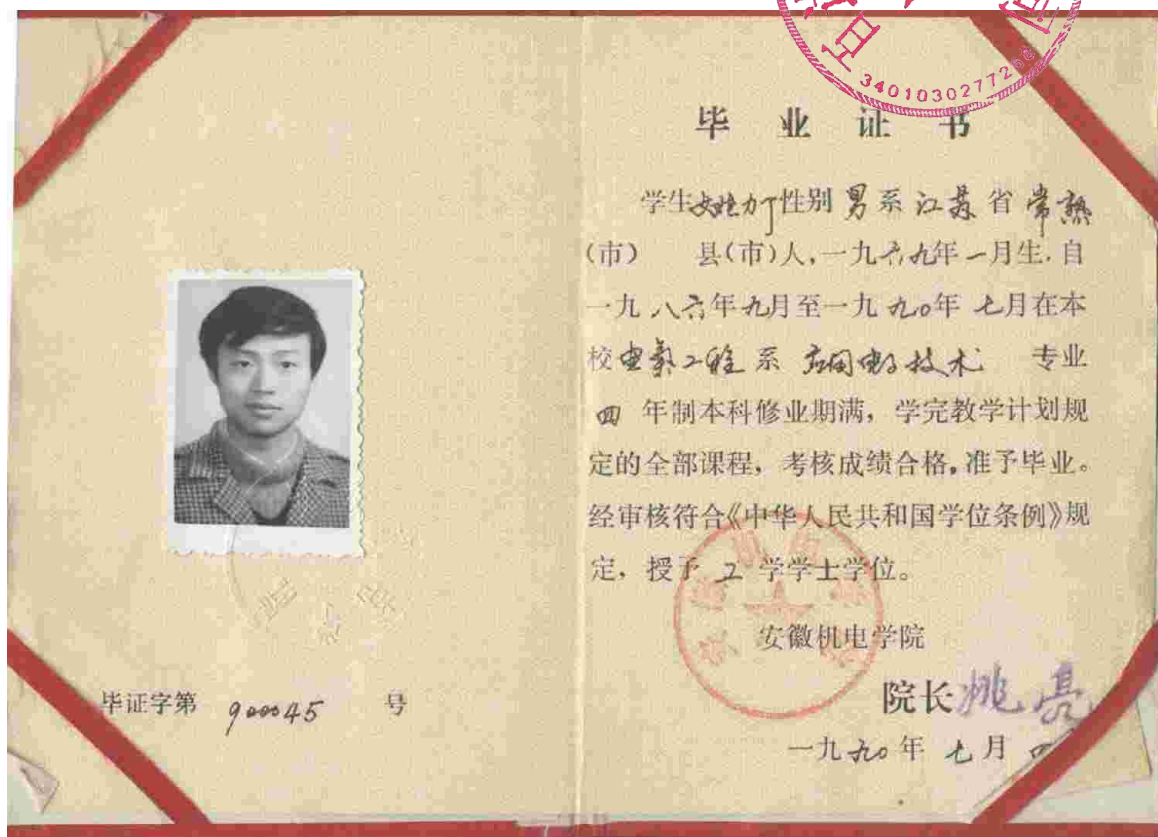 3401030277288
毕业证书
学生 姓力丁 性别 男 系 江苏 省 常熟
(市) 县(市)人,一九六九年一月生.自
一九八六年九月至一九九〇年七月在本
校 电气工程 系 应用电子技术 专业
四 年制本科修业期满,学完教学计划规
定的全部课程,考核成绩合格。准予毕业。
经审核符合《中华人民共和国学位条例》规
定,授予 工 学学士学位。
安徽机电学院
院长 姚亮
一九九〇年七月
毕证字第 900045 号